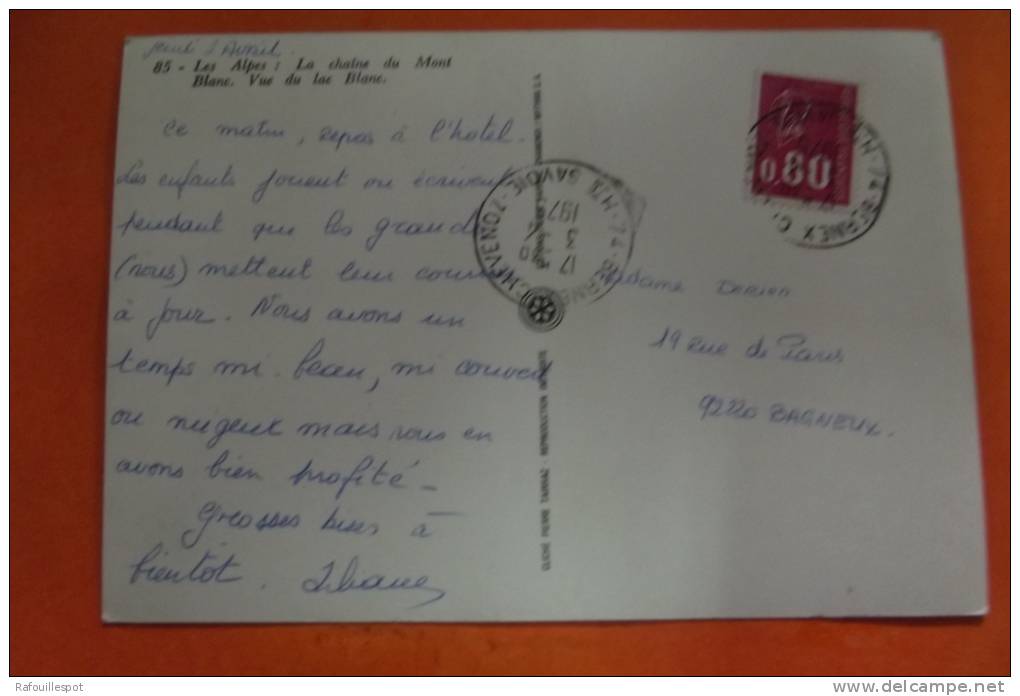 jeudi 1 Avril.
85 - Les Alpes : La chaîne du Mont
Blanc. Vue du lac Blanc.
Ce matin, repos à l'hotel.
Les enfants jouent ou écrivent
pendant que les grands
(nous) mettent leur courrier
à jour. Nous avons un
temps mi-beau, mi couvert
ou nuageux mais nous en
avons bien profité -
Grosses bises à
bientôt. Liliane
0.80
74-BERNEX
CHEVENOZ
HTE SAVOIE
17
197
Madame
19 rue de Paris
92220 BAGNEUX.
CLICHÉ PIERRE TAIRRAZ - REPRODUCTION INTERDITE
Rafouillespot
www.delcampe.net